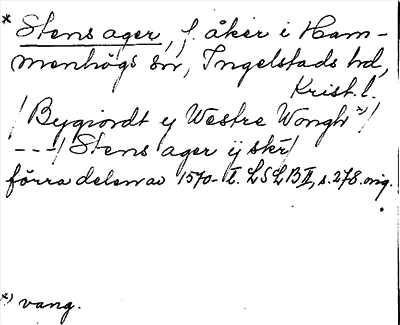 * Stens ager, f. åker i Ham-
menhögs sn, Ingelstads hd,
Krist. l.
/ Bygiordt ij Westre Wongh x) /
---/ Stens ager ij skr/
förra delen av 1570-t. LSLB II, s. 278. orig.
x) vang.